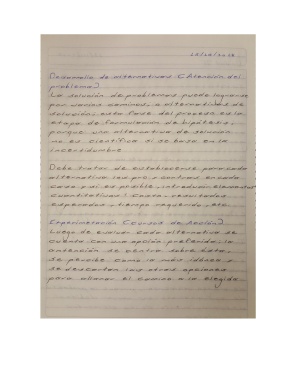 Desarrollo de alternativas (Atención del
problema)
La solución de problemas puede lograrse
por varios caminos o alternativas de
solución, esta fase del proceso es la
etapa de formulación de hipótesis,
porque una alternativa de solución
no es científica si se basa en la
incertidumbre
Debe tratar de establecerse para cada
alternativa los pro y contras en cada
caso y si es posible, introducir elementos
cuantitativos: Costo, resultados
esperados, tiempo requerido, etc.
Experimentación (Cursos de Acción)
Luego de evaluar cada alternativa se
cuenta con una opción preferida; la
atención se centra sobre ésta,
se percibe como la más idónea y
se descartan las otras opciones
para allanar el camino a la elegida